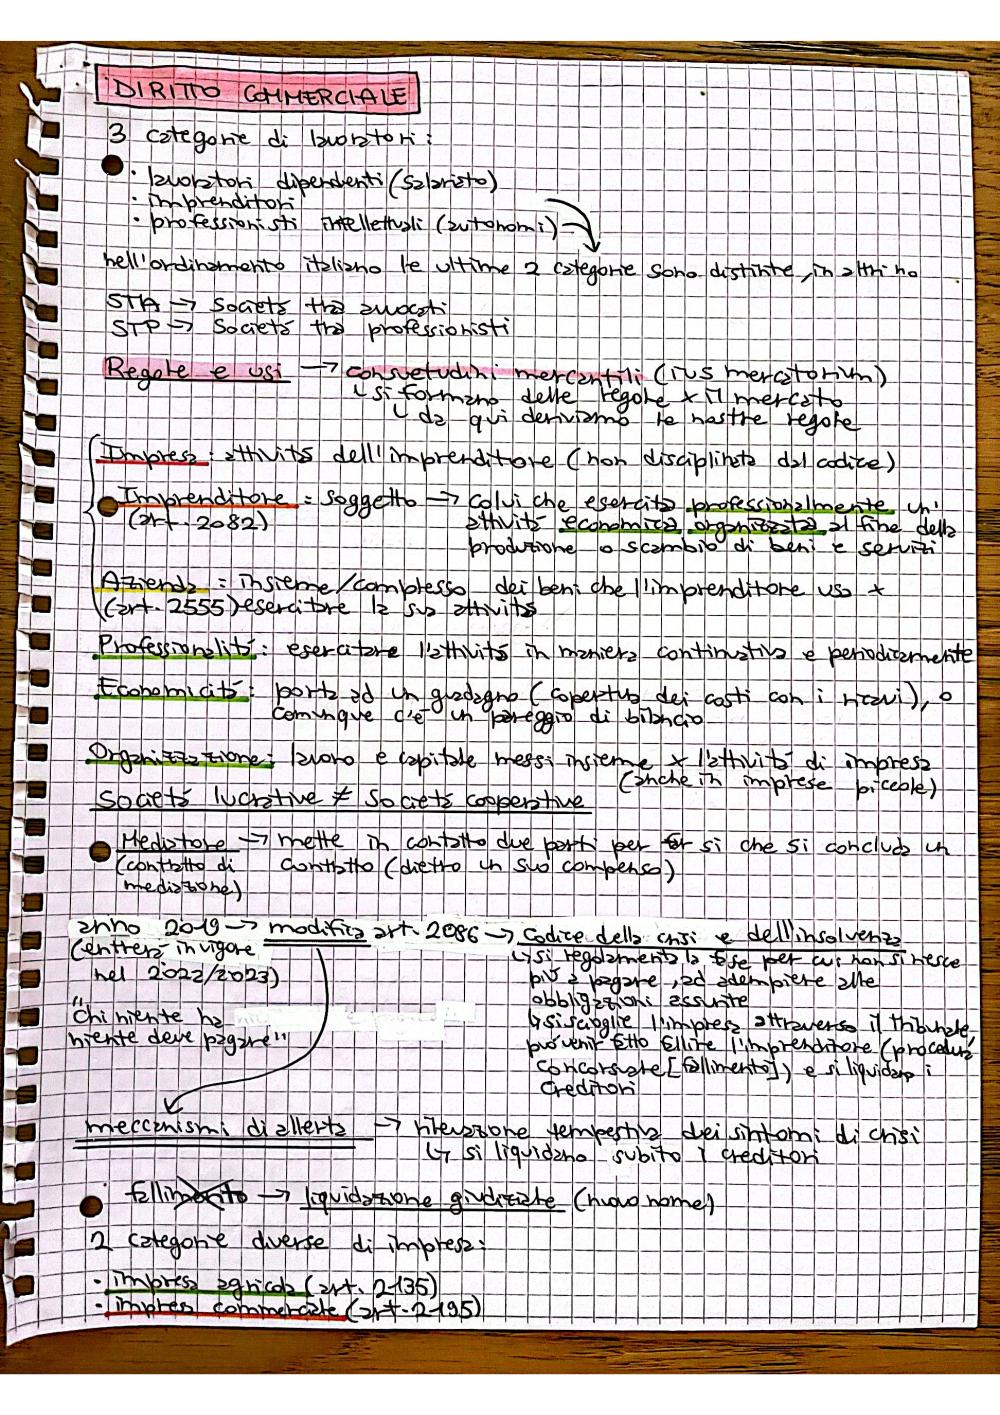 DIRITTO COMMERCIALE
3 categorie di lavoratori:
· lavoratori dipendenti (salariato)
· imprenditori
· professionisti intellettuali (autonomi)
nell'ordinamento italiano le ultime 2 categorie sono distinte, in altri no
STA → Società tra avvocati
STP → Società tra professionisti
Regole e usi → consuetudini mercantili (ius mercatorium)
↳ si formano delle regole x il mercato
↳ da qui deriviamo le nostre regole
Impresa: attività dell'imprenditore (non disciplinata dal codice)
Imprenditore = soggetto → colui che esercita professionalmente un'
(art. 2082) attività economica organizzata al fine della
produzione o scambio di beni e servizi
Azienda = insieme/complesso dei beni che l'imprenditore usa x
(art. 2555) esercitare la sua attività
Professionalità: esercitare l'attività in maniera continuativa e periodicamente
Economicità: porta ad un guadagno (copertura dei costi con i ricavi), o
comunque c'è un pareggio di bilancio
Organizzazione: lavoro e capitale messi insieme x l'attività di impresa
(anche in imprese piccole)
Società lucrative ≠ Società cooperative
Mediatore → mette in contatto due parti per far si che si concluda un
(contratto di contratto (dietro un suo compenso)
mediazione)
anno 2019 → modifica art. 2086 → Codice della crisi e dell'insolvenza
(entrerà in vigore ↳ si regolamenta la fase per cui non si riesce
nel 2022/2023) più a pagare, ad adempiere alle
obbligazioni assunte
"Chi niente ha ↳ si scioglie l'impresa attraverso il tribunale,
niente deve pagare" può venir fatto fallire l'imprenditore (procedura
concorsuale [fallimento]) e si liquidano i
creditori
meccanismi di allerta → rilevazione tempestiva dei sintomi di crisi
↳ si liquidano subito i creditori
fallimento → liquidazione giudiziale (nuovo nome)
2 categorie diverse di impresa:
· impresa agricola (art. 2135)
· impresa commerciale (art. 2195)